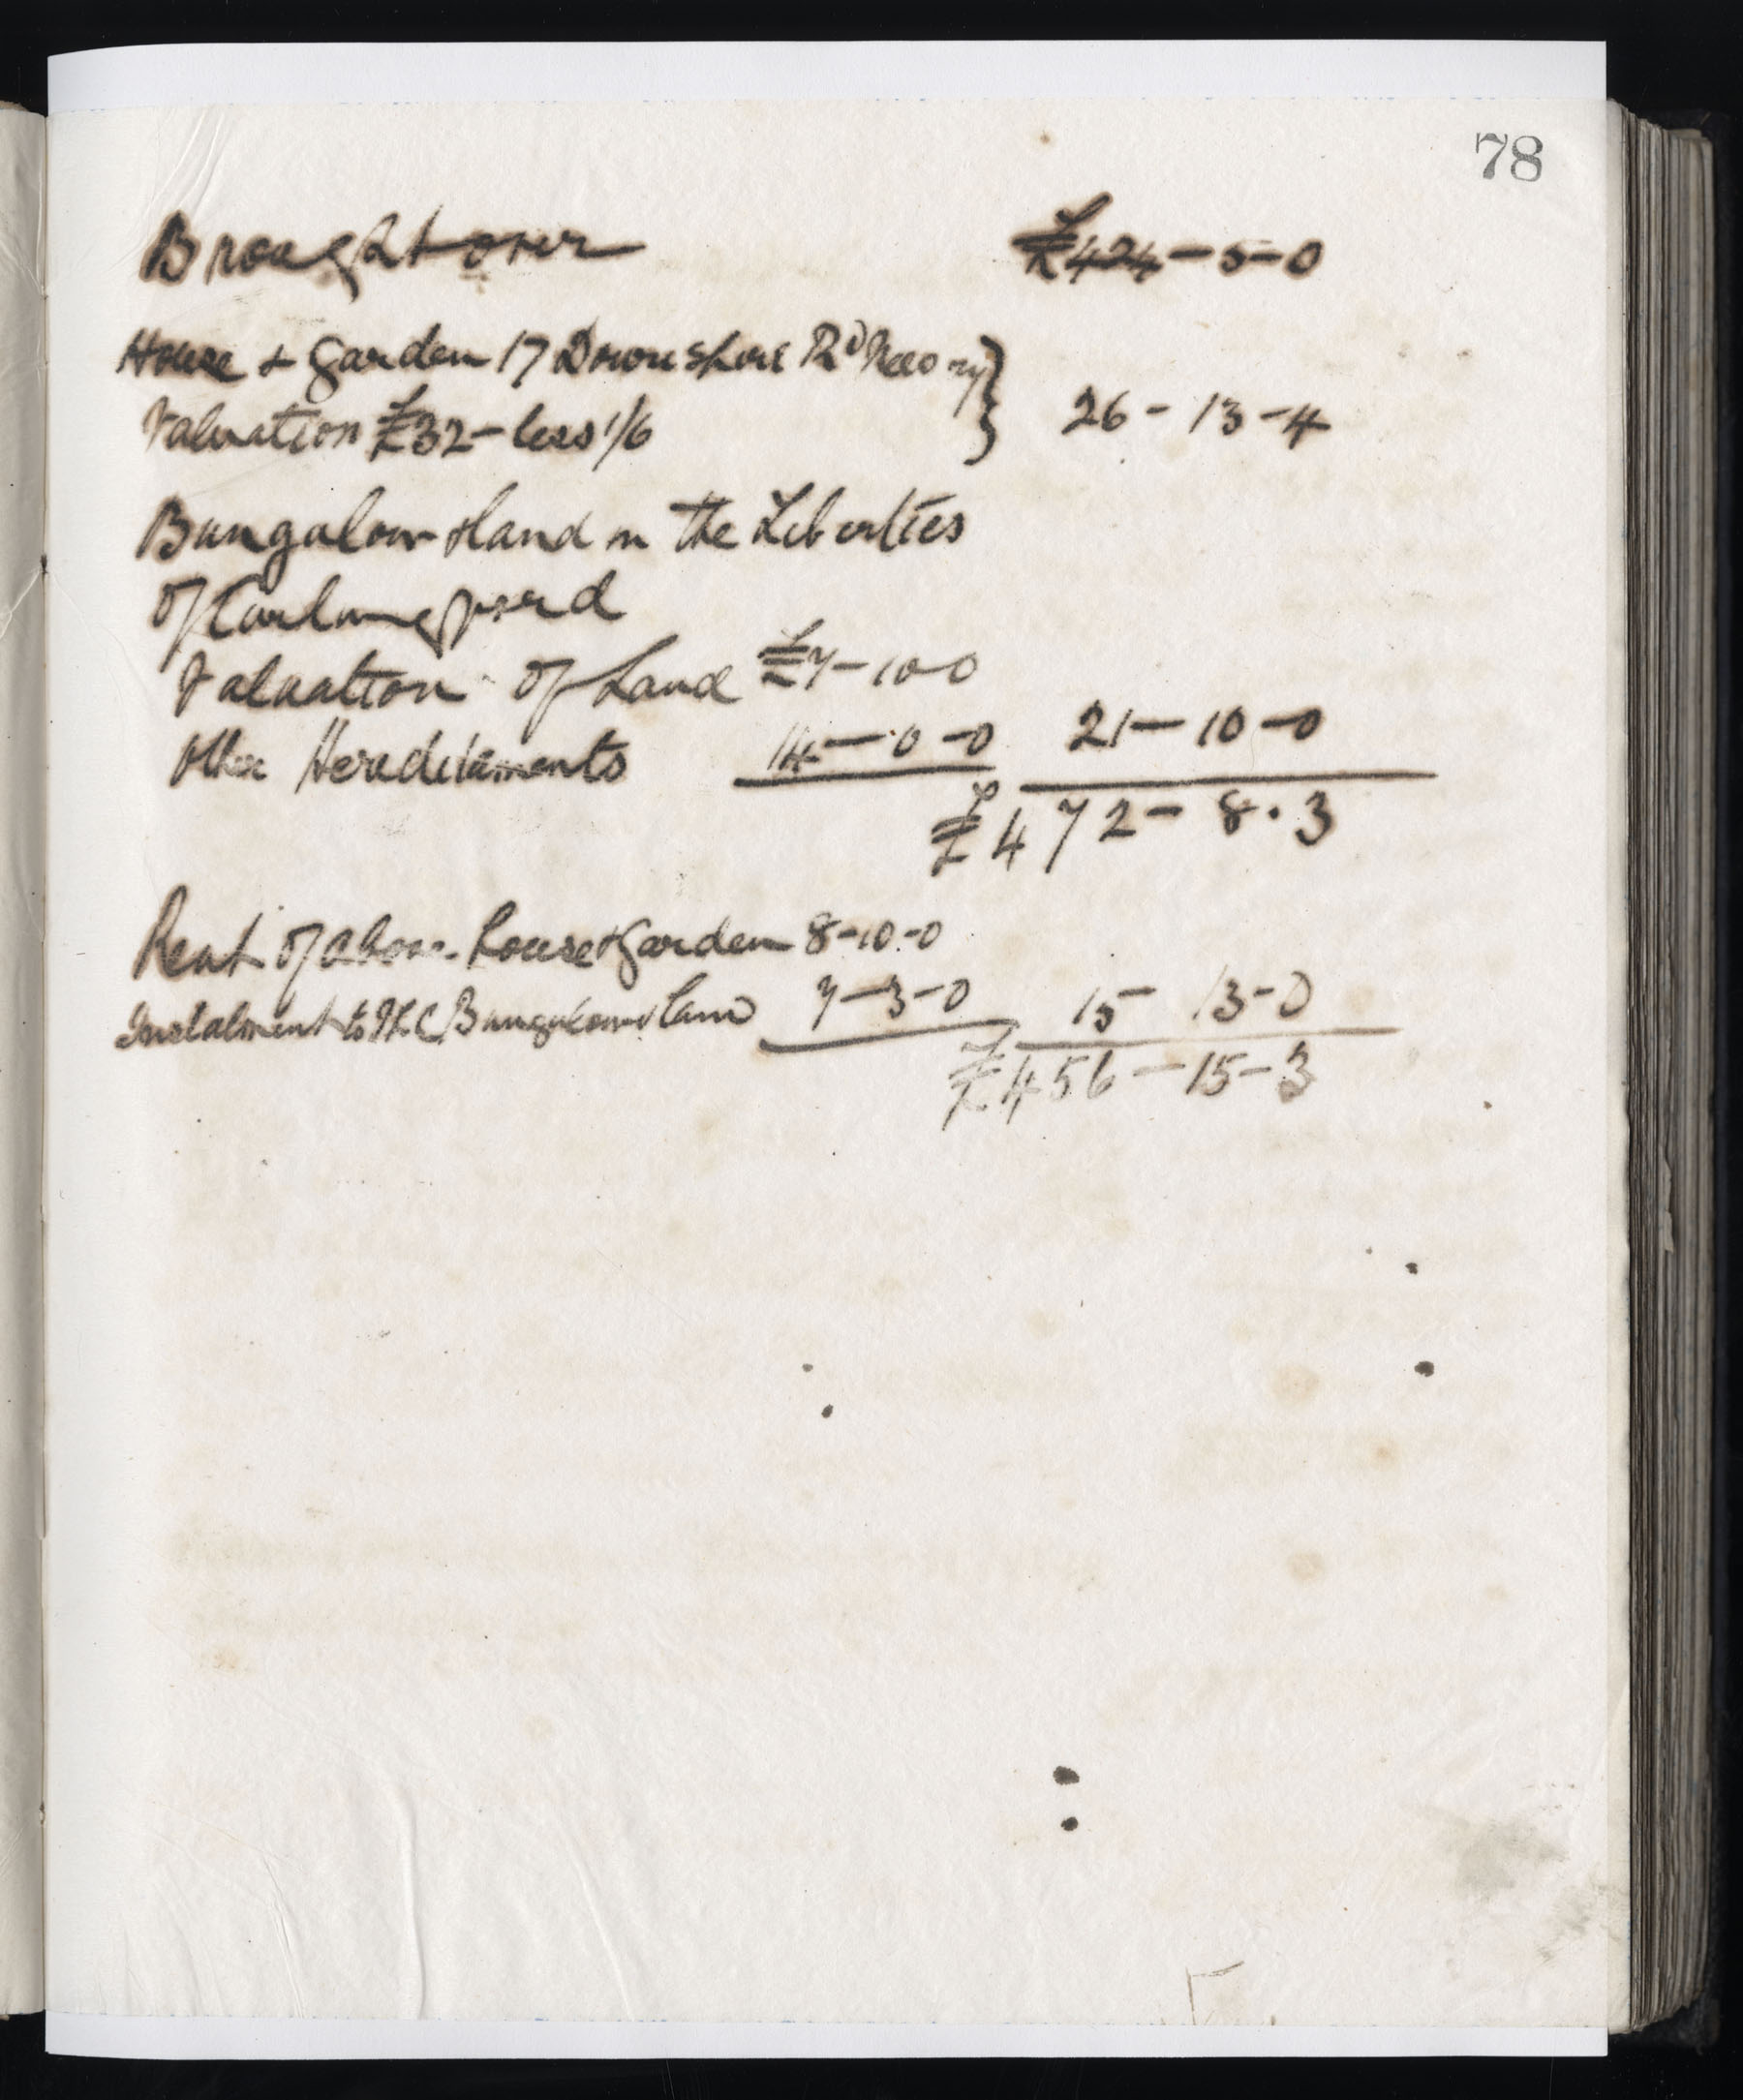 78
Brought over £424-5-0
House + Garden 17 Downshire Rd Newry }
Valuation £32- less 1/6 } 26-13-4
Bungalow + land in the Liberties
of Carlingford
Valuation of Land £7-10-0
Other Hereditaments 14-0-0 21-10-0
£472-8.3
Rent of above house + garden 8-10-0
Instalment to I.L.C. Bungalow + Land 7-3-0 15 13-0
£456-15-3